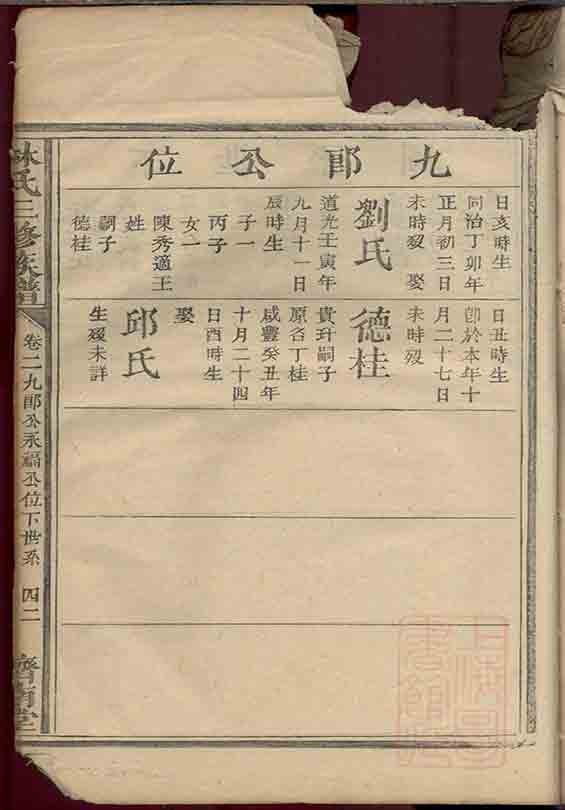 九郎公位
日亥時生
同治丁卯年
正月初三日
未時歿 娶
劉氏
道光壬寅年
九月十一日
辰時生
子一
丙子
女一
陳秀適王
姓
嗣子
德桂
日丑時生
卽於本年十
月二十七日
未時歿
德桂
貴玕嗣子
原名丁桂
咸豐癸丑年
十月二十四
日酉時生
娶
邱氏
生歿未詳
林氏二修族譜
卷二九郎公永福公位下世系 四二
濟南堂